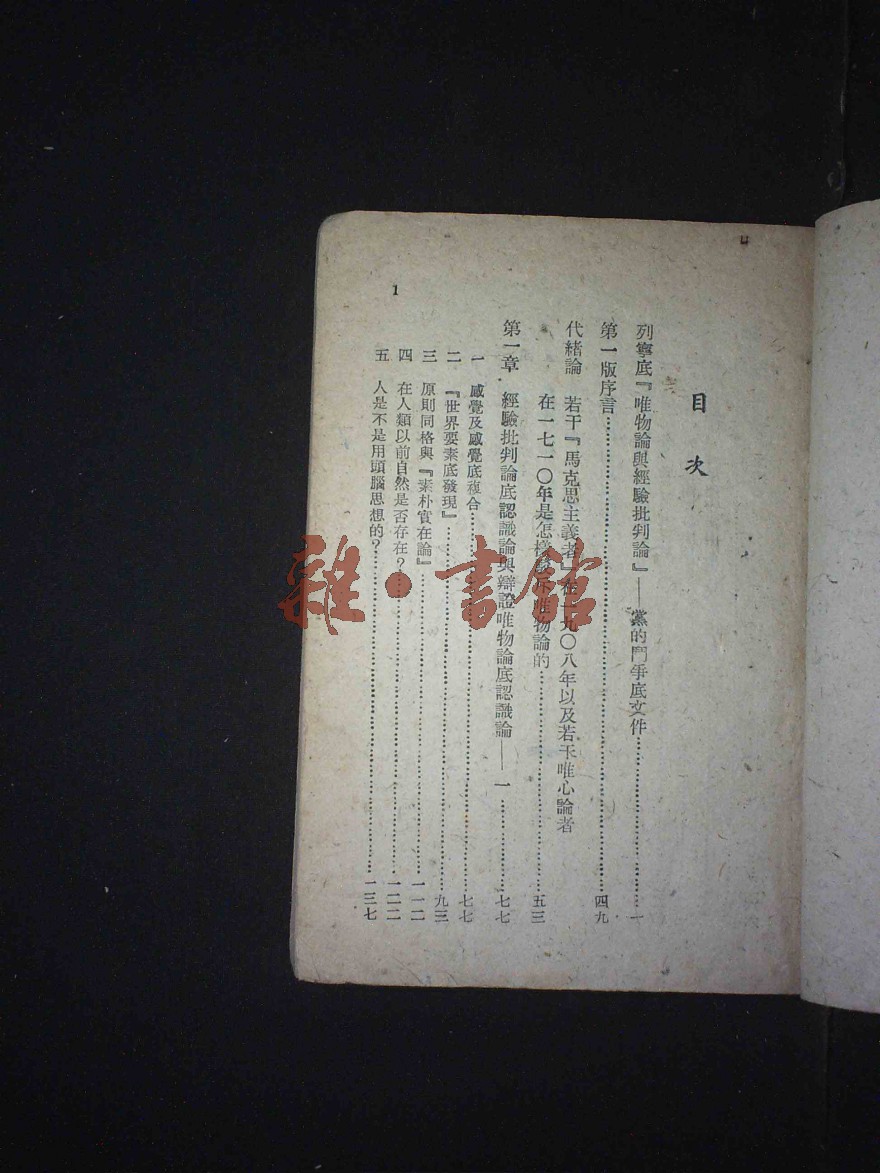 目次
列寧底『唯物論與經驗批判論』——黨的鬥爭底文件……一
第一版序言……四九
代緒論 若干『馬克思主義者』在一九〇八年以及若干唯心論者
在一七一〇年是怎樣駁斥唯物論的……五三
第一章 經驗批判論底認識論與辯證唯物論底認識論——一……七七
一 感覺及感覺底複合……七七
二 『世界要素底發現』……九三
三 原則同格與『素朴實在論』……一一二
四 在人類以前自然是否存在？……一二二
五 人是不是用頭腦思想的？……一三七
1
雜·書館